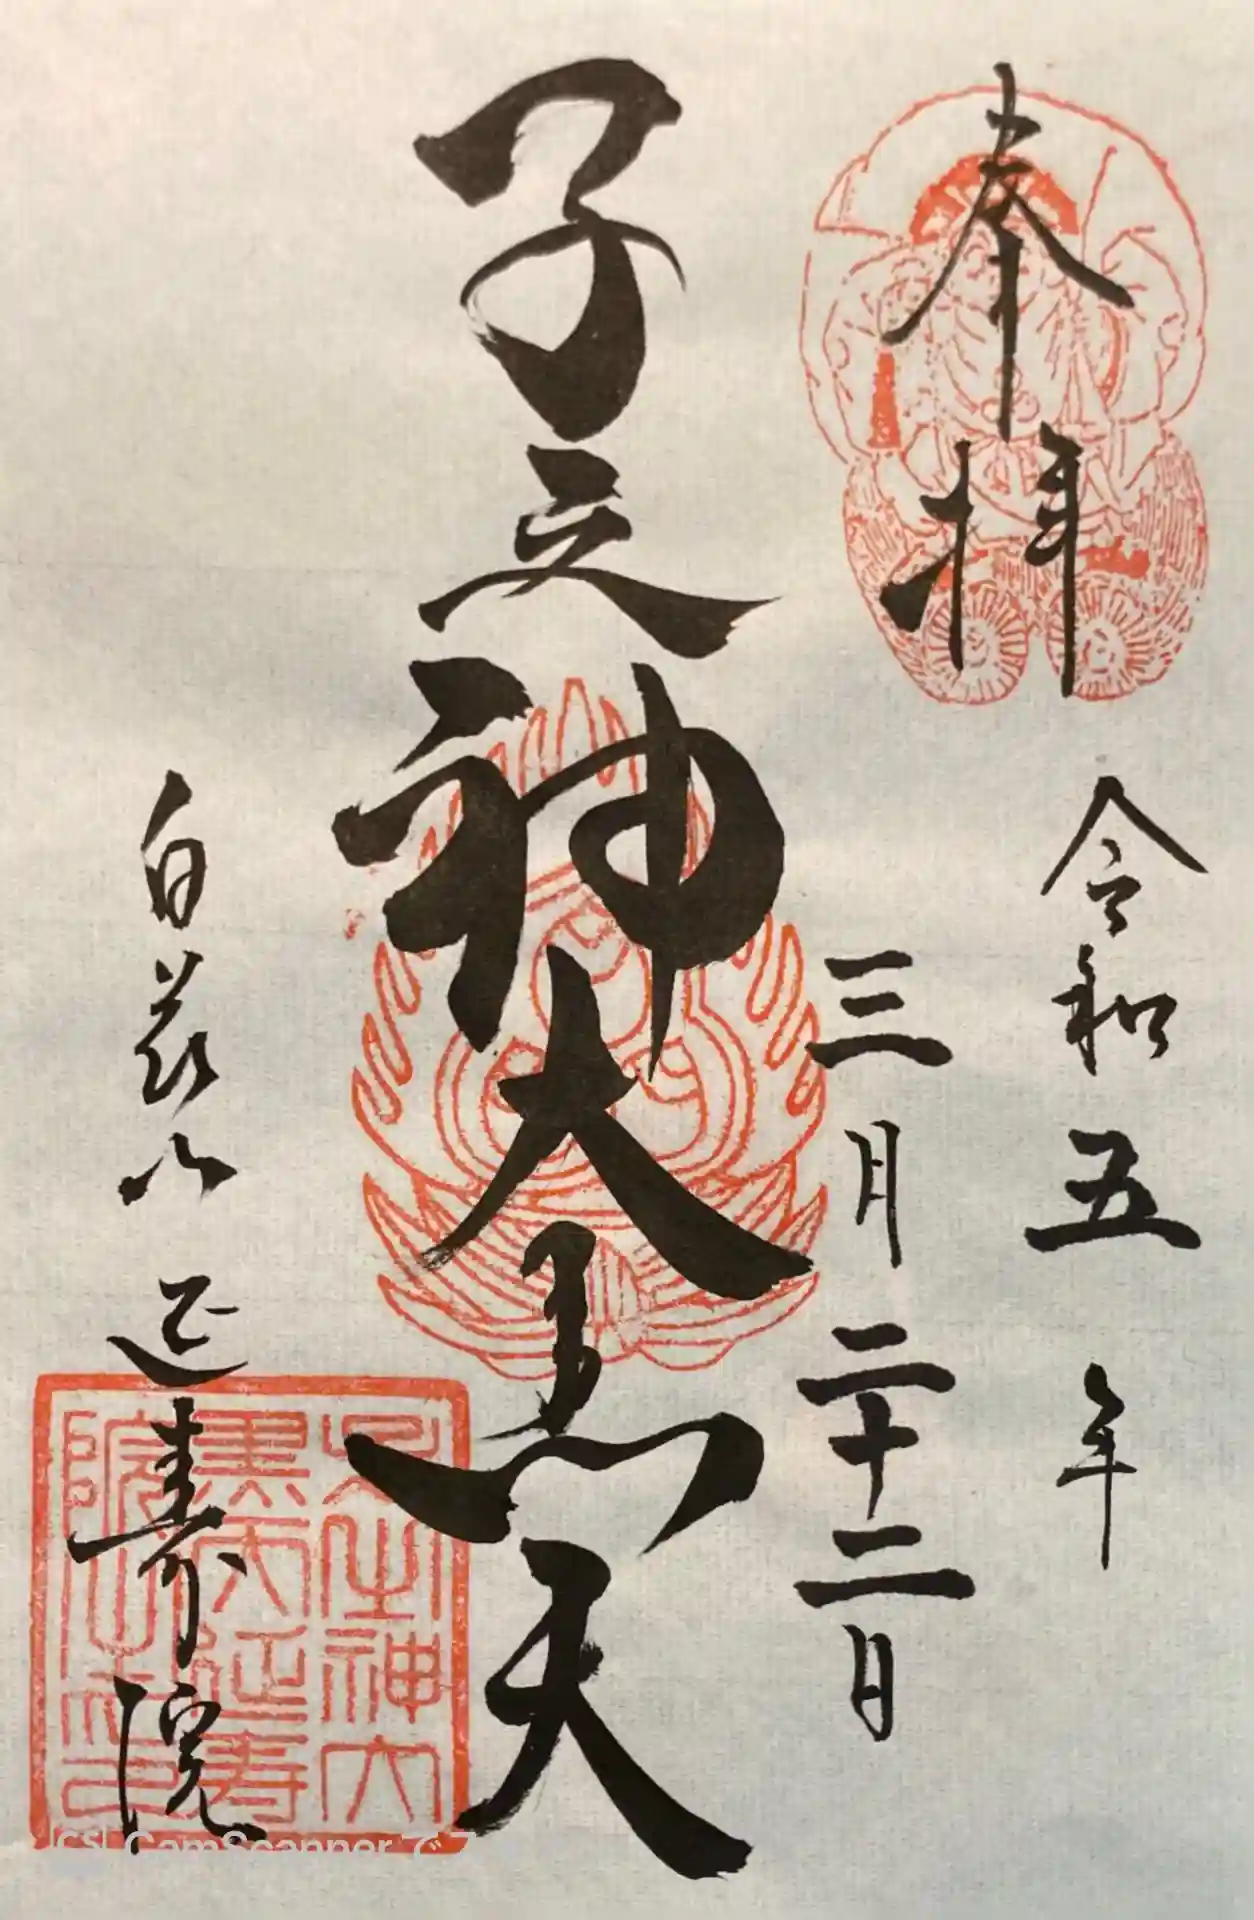 奉拝
令和五年
三月二十二日
子之神大黒天
白花山 延寿院
子之神大
黒天延寿
院之印
CamScanner で